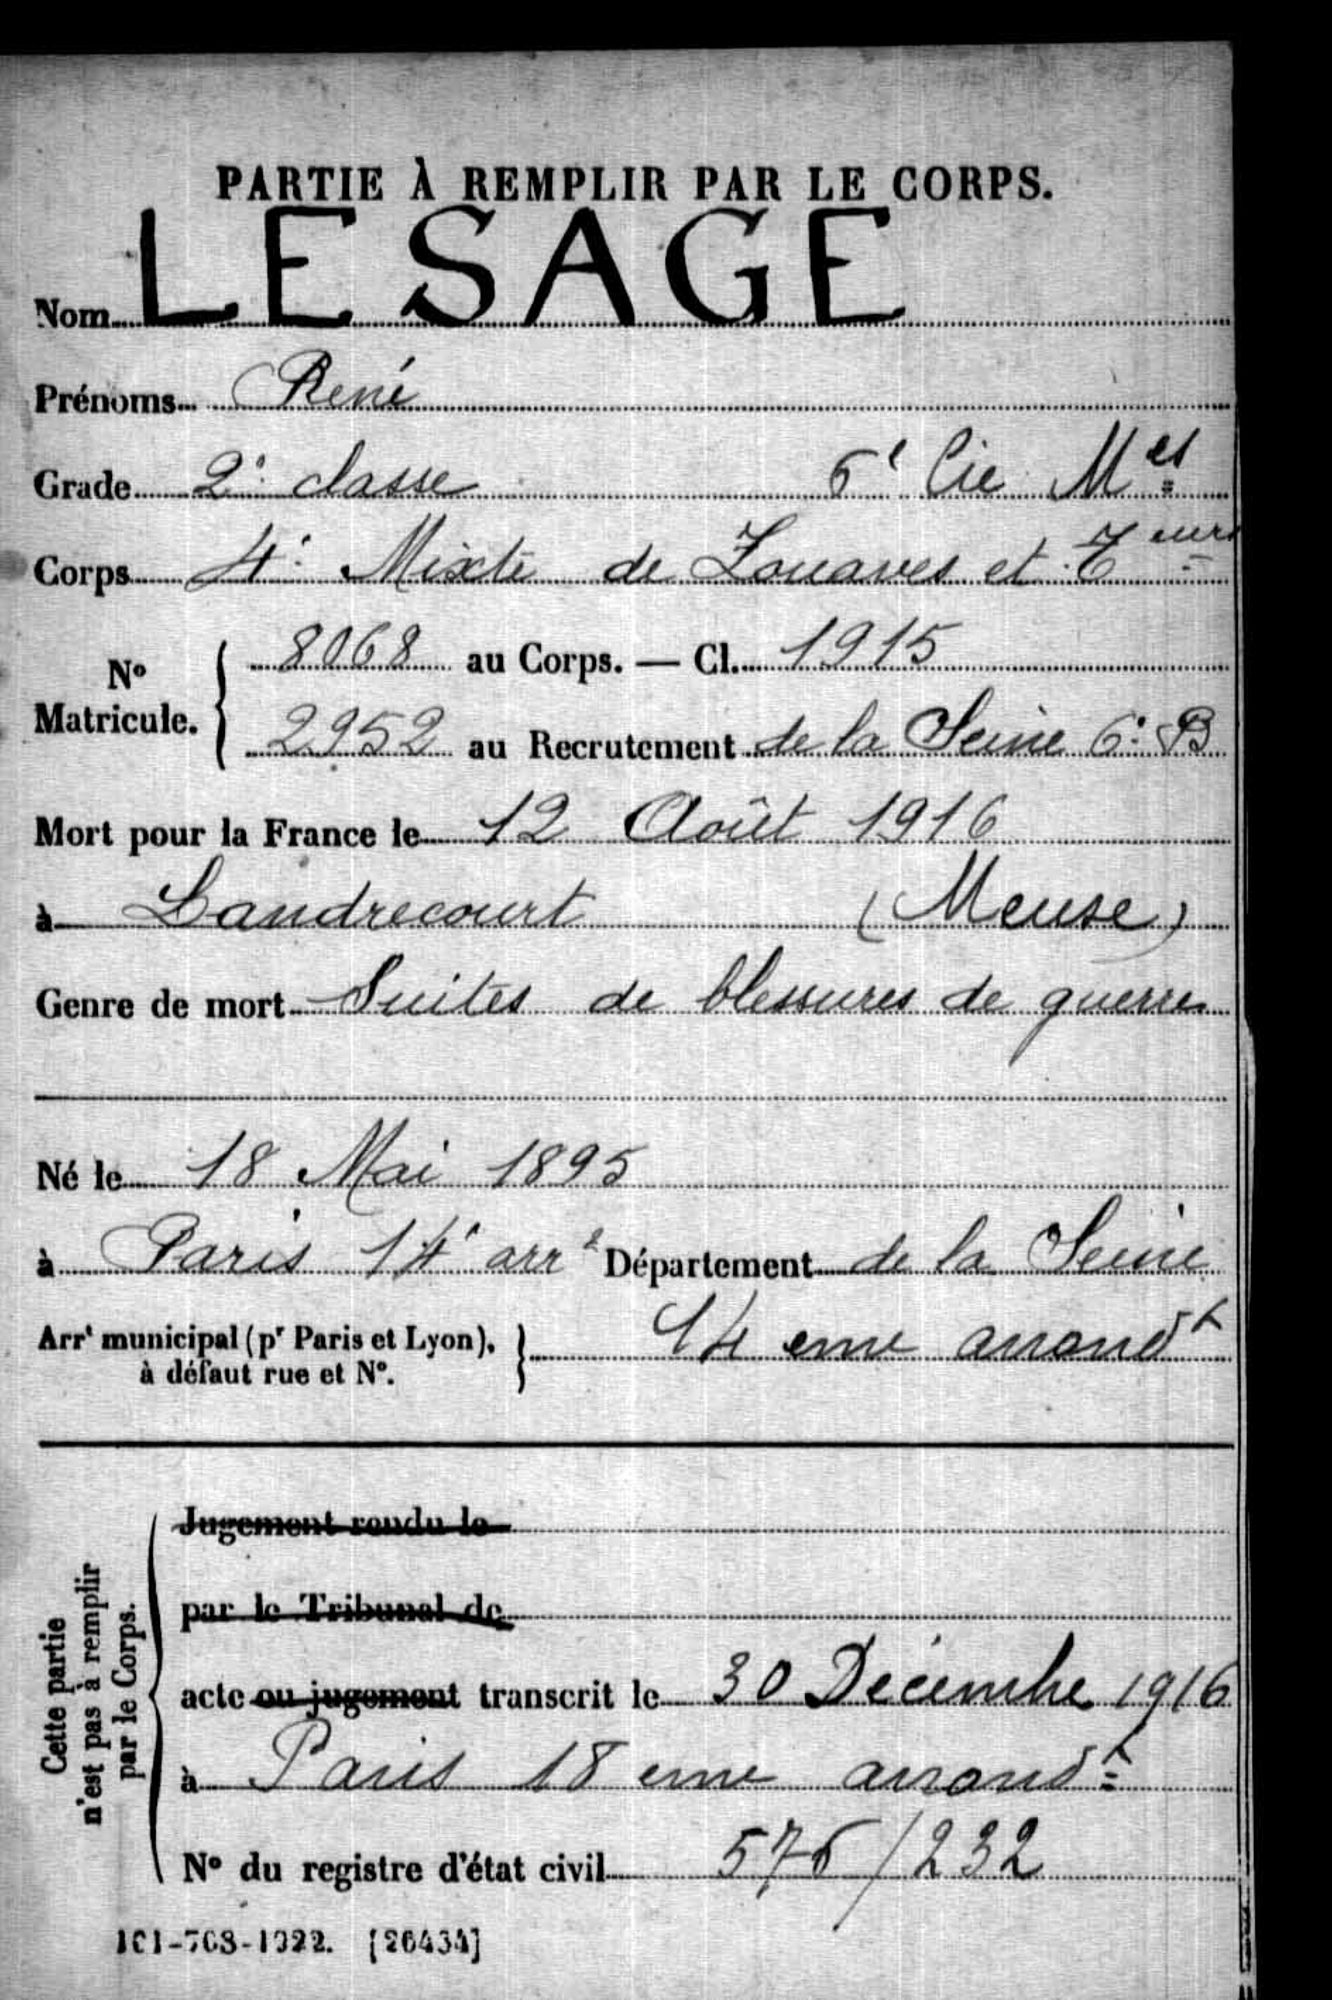 PARTIE À REMPLIR PAR LE CORPS.
Nom LESAGE
Prénoms René
Grade 2e classe 6e Cie Mes
Corps 4e Mixte de Zouaves et Teurs
No Matricule. 8068 au Corps. — Cl. 1915
2952 au Recrutement de la Seine 6e B
Mort pour la France le 12 Août 1916
à Landrecourt (Meuse)
Genre de mort Suites de blessures de guerre
Né le 18 Mai 1895
à Paris 14e arrt Département de la Seine
Arrt municipal (pr Paris et Lyon), à défaut rue et No. 14 eme arrondt
Cette partie n'est pas à remplir par le Corps.
Jugement rendu le
par le Tribunal de
acte ou jugement transcrit le 30 Décembre 1916
à Paris 18 eme arrondt
No du registre d'état civil 576/232
101-708-1922. [26434]